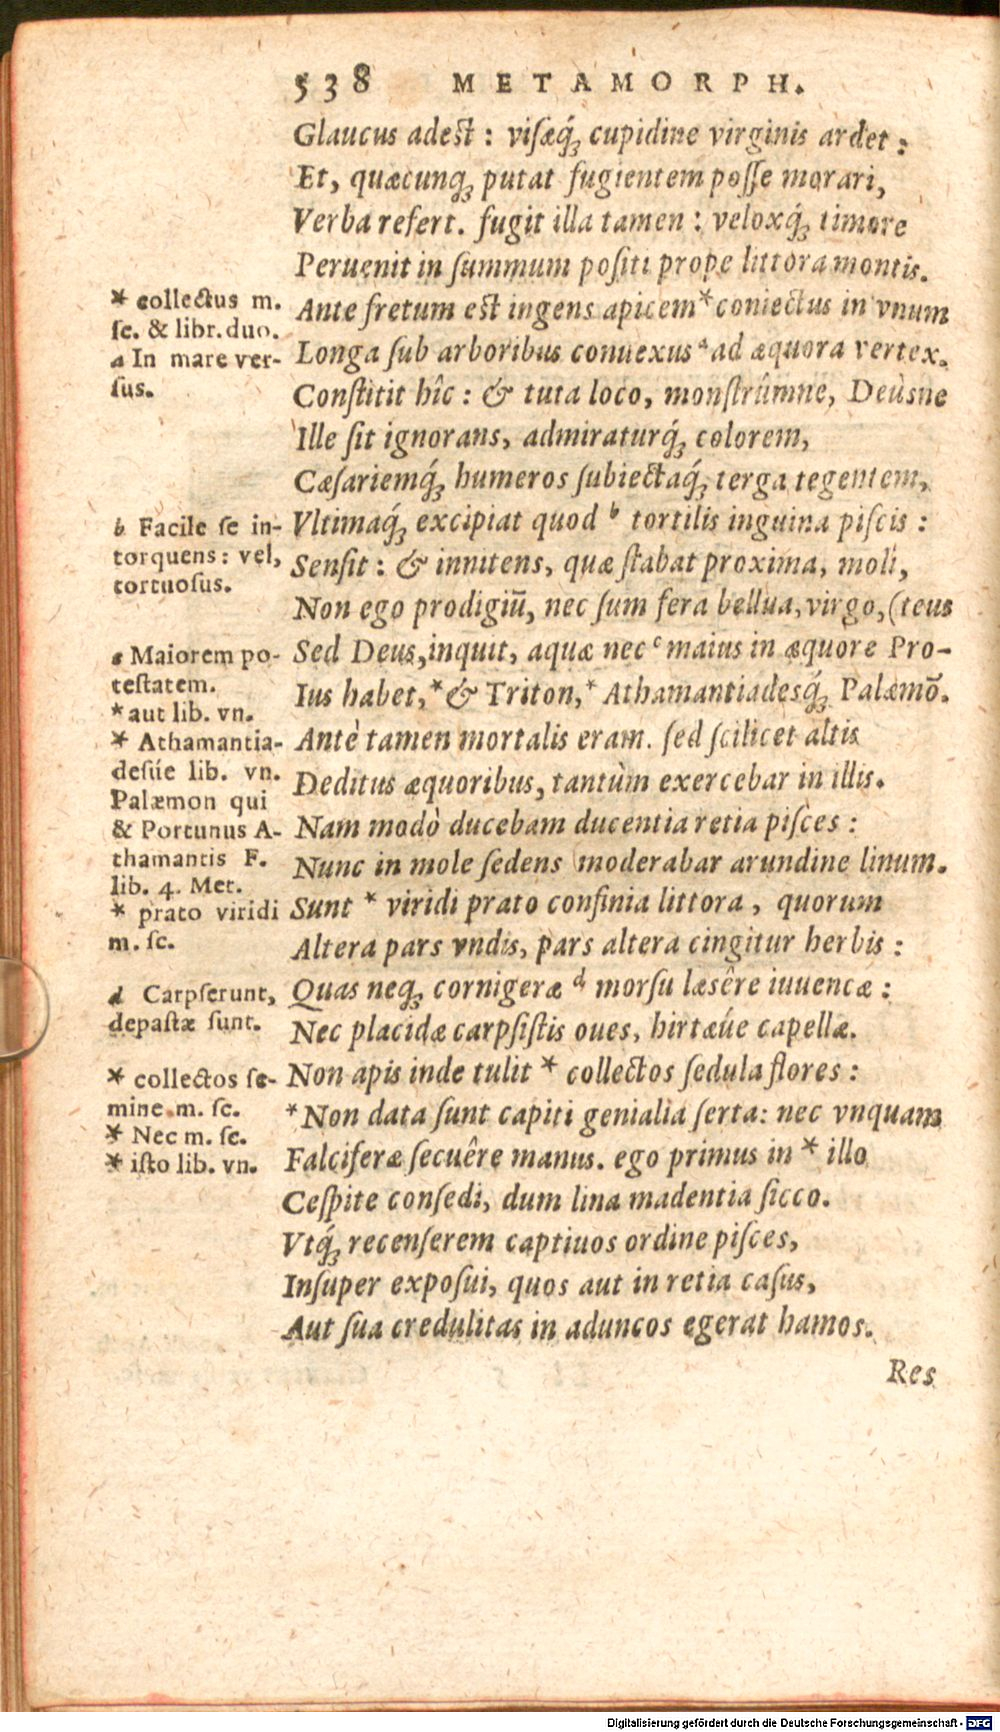 538 METAMORPH.
Glaucus adest : visæq́; cupidine virginis ardet :
Et, quæcunq; putat fugientem posse morari,
Verba refert. fugit illa tamen : veloxq́; timore
Peruenit in summum positi prope littora montis.
Ante fretum est ingens apicem * coniectus in vnum
Longa sub arboribus conuexus ª ad æquora vertex.
Constitit hîc : & tuta loco, monstrúmne, Deùsne
Ille sit ignorans, admiraturq́; colorem,
Cæsariemq́; humeros subiectaq́; terga tegentem,
Vltimaq́; excipiat quod ᵇ tortilis inguina piscis :
Sensit : & innitens, quæ stabat proxima, moli,
Non ego prodigiū, nec sum fera bellua, virgo, (teus
Sed Deus, inquit, aquæ nec ᶜ maius in æquore Pro-
Ius habet, * & Triton, * Athamantiadesq́; Palæmō.
Antè tamen mortalis eram. sed scilicet altis
Deditus æquoribus, tantùm exercebar in illis.
Nam modò ducebam ducentia retia pisces :
Nunc in mole sedens moderabar arundine linum.
Sunt * viridi prato confinia littora, quorum
Altera pars vndis, pars altera cingitur herbis :
Quas neq; cornigeræ ᵈ morsu læsêre iuuencæ :
Nec placidæ carpsistis oues, hirtæúe capellæ.
Non apis inde tulit * collectos sedula flores :
* Non data sunt capiti genialia serta: nec vnquam
Falciferæ secuêre manus. ego primus in * illo
Cespite consedi, dum lina madentia sicco.
Vtq́; recenserem captiuos ordine pisces,
Insuper exposui, quos aut in retia casus,
Aut sua credulitas in aduncos egerat hamos.
Res
* collectus m.
sc. & libr. duo.
a In mare ver-
sus.
b Facile se in-
torquens : vel,
tortuosus.
c Maiorem po-
testatem.
* aut lib. vn.
* Athamantia-
desúe lib. vn.
Palæmon qui
& Portunus A-
thamantis F.
lib. 4. Met.
* prato viridi
m. sc.
d Carpserunt,
depastæ sunt.
* collectos se-
mine m. sc.
* Nec m. sc.
* isto lib. vn.
Digitalisierung gefördert durch die Deutsche Forschungsgemeinschaft - DFG